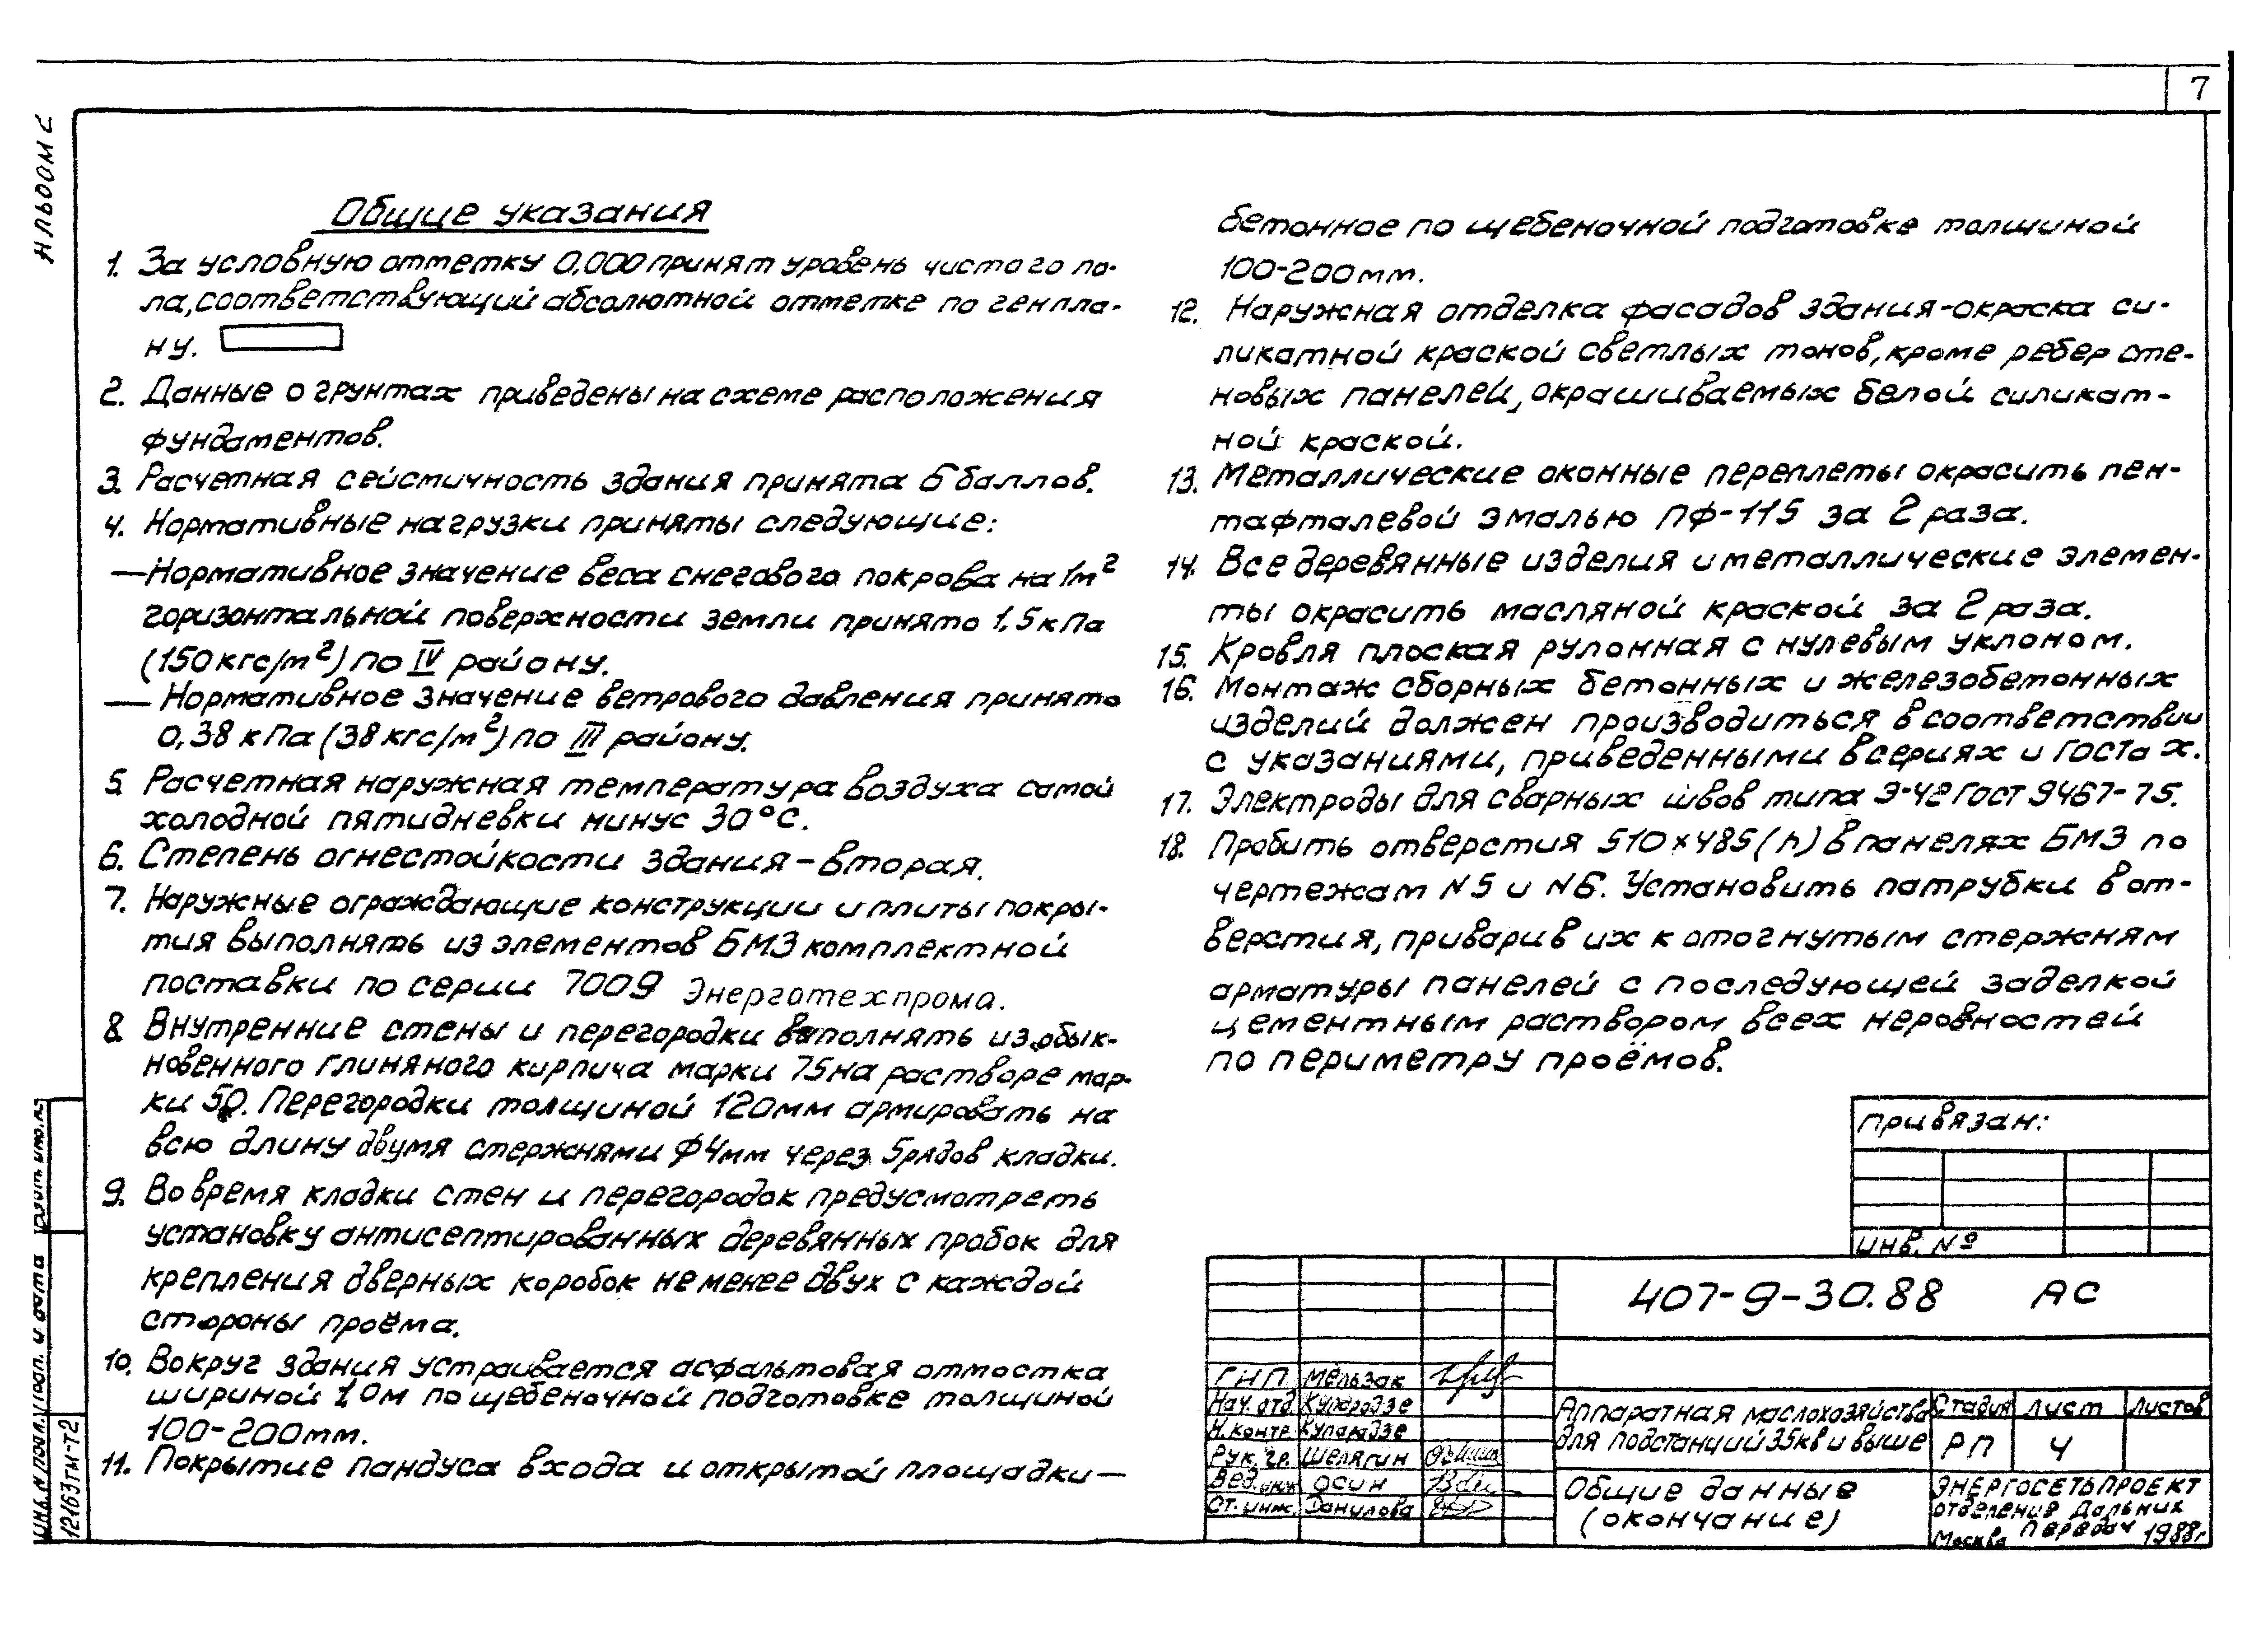 7
Альбом 2
Общие указания
1. За условную отметку 0,000 принят уровень чистого по-
ла, соответствующий абсолютной отметке по генпла-
ну.
2. Данные о грунтах приведены на схеме расположения
фундаментов.
3. Расчетная сейсмичность здания принята 6 баллов.
4. Нормативные нагрузки приняты следующие:
— Нормативное значение веса снегового покрова на 1м²
горизонтальной поверхности земли принято 1,5 кПа
(150 кгс/м²) по IV району.
— Нормативное значение ветрового давления принято
0,38 кПа (38 кгс/м²) по III району.
5. Расчетная наружная температура воздуха самой
холодной пятидневки минус 30°С.
6. Степень огнестойкости здания – вторая.
7. Наружные ограждающие конструкции и плиты покры-
тия выполнять из элементов БМЗ комплектной
поставки по серии 7009 Энерготехпрома.
8. Внутренние стены и перегородки выполнять из обык-
новенного глиняного кирпича марки 75 на растворе мар-
ки 50. Перегородки толщиной 120мм армировать на
всю длину двумя стержнями ф4мм через 5 рядов кладки.
9. Во время кладки стен и перегородок предусмотреть
установку антисептированных деревянных пробок для
крепления дверных коробок не менее двух с каждой
стороны проёма.
10. Вокруг здания устраивается асфальтовая отмостка
шириной 1,0м по щебеночной подготовке толщиной
100-200мм.
11. Покрытие пандуса входа и открытой площадки —
бетонное по щебеночной подготовке толщиной
100-200мм.
12. Наружная отделка фасадов здания - окраска си-
ликатной краской светлых тонов, кроме ребер сте-
новых панелей, окрашиваемых белой силикат-
ной краской.
13. Металлические оконные переплеты окрасить пен-
тафталевой эмалью ПФ-115 за 2 раза.
14. Все деревянные изделия и металлические элемен-
ты окрасить масляной краской за 2 раза.
15. Кровля плоская рулонная с нулевым уклоном.
16. Монтаж сборных бетонных и железобетонных
изделий должен производиться в соответствии
с указаниями, приведенными в сериях и ГОСТах.
17. Электроды для сварных швов типа Э-42 ГОСТ 9467-75.
18. Пробить отверстия 510×485(h) в панелях БМЗ по
чертежам N5 и N6. Установить патрубки в от-
верстия, приварив их к отогнутым стержням
арматуры панелей с последующей заделкой
цементным раствором всех неровностей
по периметру проёмов.
Привязан:
Инв. №
407-9-30.88 АС
ГИП Мельзак
Нач. отд. Купарадзе
Н. контр. Купарадзе
Рук. гр. Шелягин
Вед. инж. Осин
Ст. инж. Данилова
Аппаратная маслохозяйства
для подстанций 35кв и выше
Стадия Лист Листов
РП 4
Общие данные
(окончание)
Энергосетьпроект
отделение Дальних
Передач
Москва 1988г
Инв. N подл. Подп. и дата Взам. инв. N
12163тм-т2